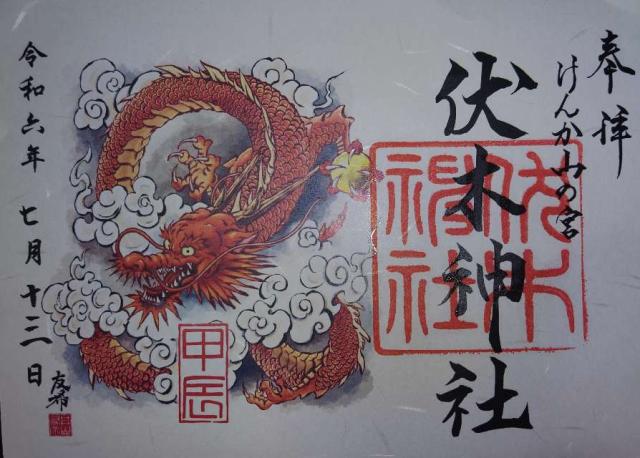 奉拝
けんか山の宮
伏木神社
伏木
神社
甲辰
令和六年 七月 十三日
友希